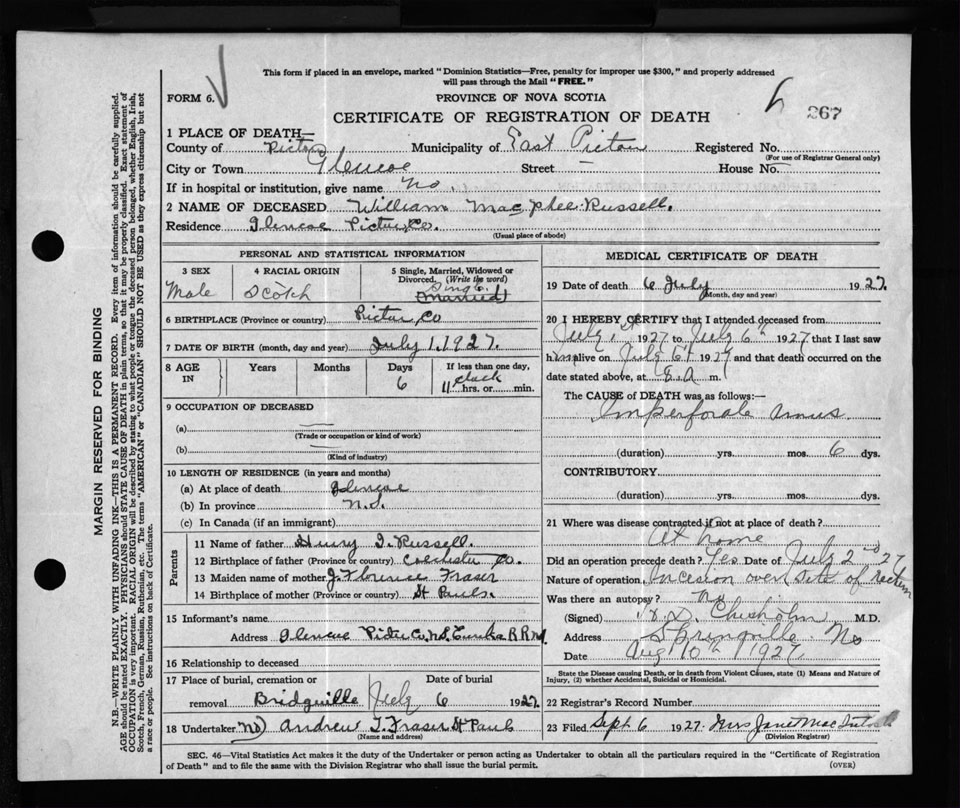 This form if placed in an envelope, marked "Dominion Statistics—Free, penalty for improper use $300," and properly addressed
will pass through the Mail "FREE."
FORM 6.
PROVINCE OF NOVA SCOTIA
CERTIFICATE OF REGISTRATION OF DEATH
267
1 PLACE OF DEATH—
County of Pictou Municipality of East Pictou Registered No.
(For use of Registrar General only)
City or Town Glencoe Street — House No. —
If in hospital or institution, give name No.
2 NAME OF DECEASED William MacPhee Russell.
Residence Glencoe Pictou Co.
(Usual place of abode)
PERSONAL AND STATISTICAL INFORMATION
3 SEX
Male
4 RACIAL ORIGIN
Scotch
5 Single, Married, Widowed or
Divorced, (Write the word)
Single
(Married)
6 BIRTHPLACE (Province or country) Pictou Co
7 DATE OF BIRTH (month, day and year) July 1, 1927.
8 AGE
IN
Years
Months
Days
6
If less than one day,
11 hrs. or min.
9 OCCUPATION OF DECEASED
(a) —
(Trade or occupation or kind of work)
(b) —
(Kind of industry)
10 LENGTH OF RESIDENCE (in years and months)
(a) At place of death Glencoe
(b) In province N.S.
(c) In Canada (if an immigrant)
Parents
11 Name of father Henry I. Russell.
12 Birthplace of father (Province or country) Colchester Co.
13 Maiden name of mother J. Florence Fraser
14 Birthplace of mother (Province or country) St Pauls.
15 Informant's name
Address Glencoe Pictou Co. N.S. Eureka R R No1
16 Relationship to deceased
17 Place of burial, cremation or Date of burial
removal Bridgville July 6 1927.
18 Undertaker Andrew T. Fraser St Pauls
(Name and address)
MEDICAL CERTIFICATE OF DEATH
19 Date of death 6 July 1927.
(Month, day and year)
20 I HEREBY CERTIFY that I attended deceased from
July 1st 1927 to July 6th 1927 that I last saw
him alive on July 6th 1927 and that death occurred on the
date stated above, at 8 A m.
The CAUSE of DEATH was as follows:—
Imperforate Annus
(duration) yrs. mos. 6 dys.
CONTRIBUTORY
(duration) yrs. mos. dys.
21 Where was disease contracted if not at place of death?
At home
Did an operation precede death? Yes Date of July 2nd 27
Nature of operation Incesion over site of Rectum
Was there an autopsy? No
(Signed) Chisholm M.D.
Address Springville NS
Date Aug 10th 1927
State the Disease causing Death, or in death from Violent Causes, state (1) Means and Nature of
Injury, (2) whether Accidental, Suicidal or Homicidal.
22 Registrar's Record Number
23 Filed Sept 6 1927. Mrs Jane MacIntosh
(Division Registrar)
SEC. 46—Vital Statistics Act makes it the duty of the Undertaker or person acting as Undertaker to obtain all the particulars required in the "Certificate of Registration
of Death" and to file the same with the Division Registrar who shall issue the burial permit. (OVER)
MARGIN RESERVED FOR BINDING
N.B.—WRITE PLAINLY WITH UNFADING INK—THIS IS A PERMANENT RECORD. Every item of information should be carefully supplied.
AGE should be stated EXACTLY. PHYSICIANS should STATE CAUSE OF DEATH in plain terms, so that it may be properly classified. Exact statement of
OCCUPATION is very important. RACIAL ORIGIN will be described by stating to what people or tongue the deceased person belonged, whether English, Irish,
Scotch, French, German, Russian, Ruthenian, etc. The terms "AMERICAN" or "CANADIAN" SHOULD NOT BE USED as they express citizenship but not
a race or people. See instructions on back of Certificate.